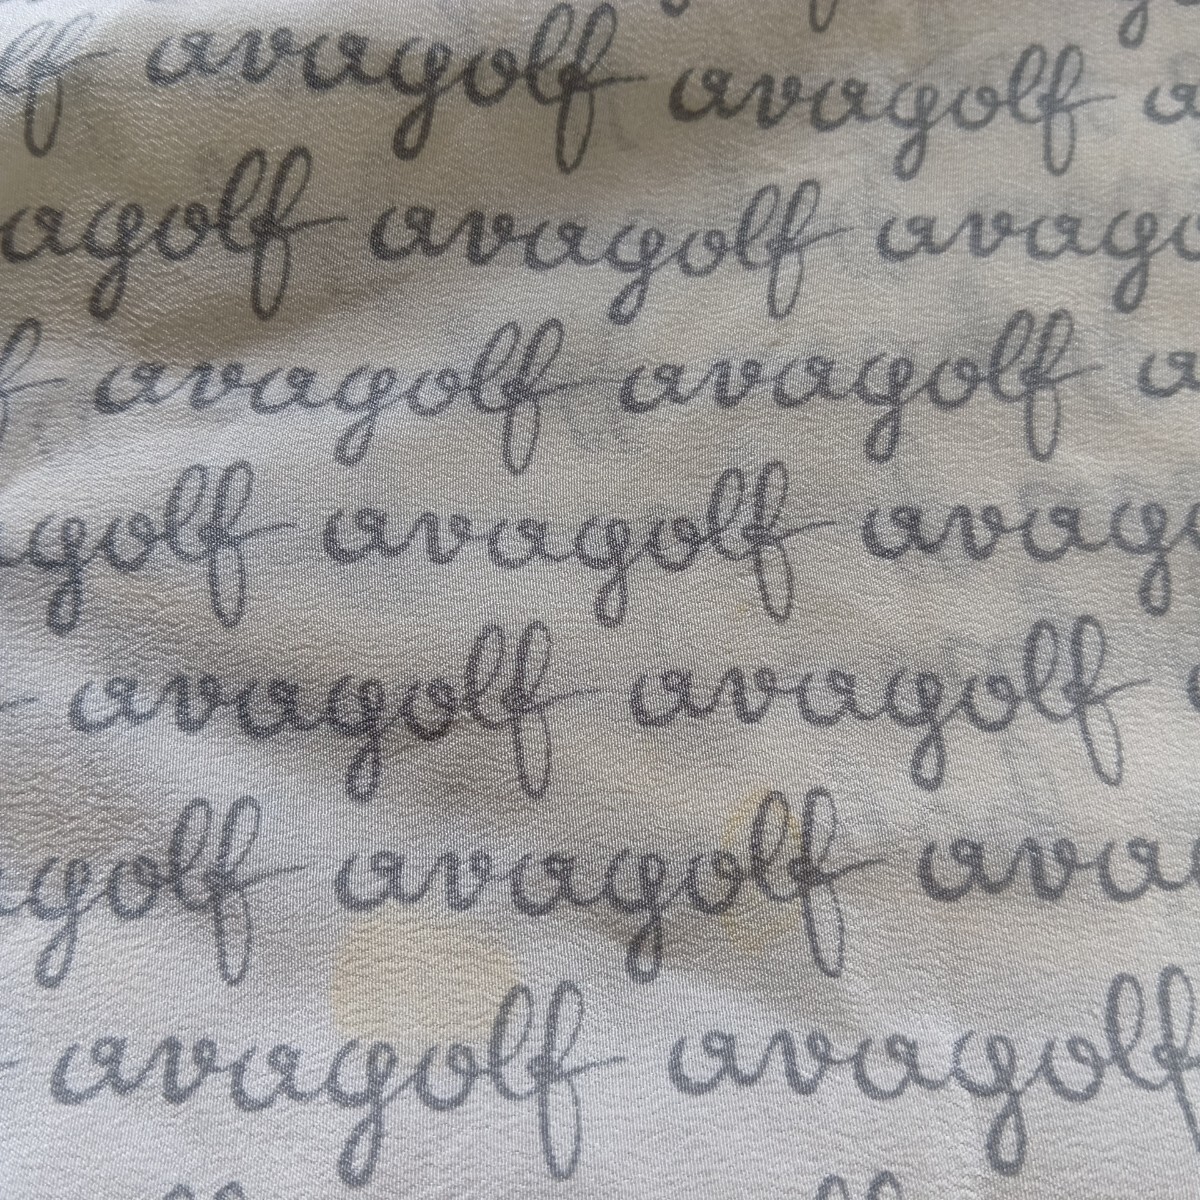 lf avagolf avagolf a
agolf avagolf avago
f avagolf avagolf a
golf avagolf avag
avagolf avagolf
golf avagolf ava
avagolf avagolf